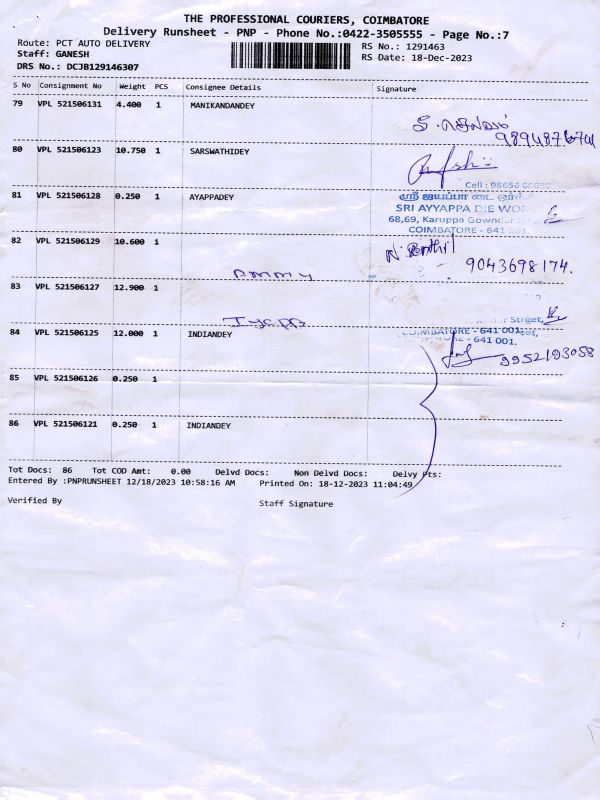 THE PROFESSIONAL COURIERS, COIMBATORE
Delivery Runsheet - PNP - Phone No.:0422-3505555 - Page No.:7
Route: PCT AUTO DELIVERY
RS No.: 1291463
Staff: GANESH
RS Date: 18-Dec-2023
DRS No.: DCJB129146307
S No Consignment No Weight PCS Consignee Details Signature
79 VPL 521506131 4.400 1 MANIKANDANDEY
9894876741
80 VPL 521506123 10.750 1 SARSWATHIDEY
Cell : 98656
81 VPL 521506128 0.250 1 AYAPPADEY
ஸ்ரீ ஐயப்பா டை
SRI AYYAPPA DIE WOR
68,69, Karuppa Gownder
COIMBATORE - 641 001
82 VPL 521506129 10.600 1
9043698174.
83 VPL 521506127 12.900 1
Street,
84 VPL 521506125 12.000 1 INDIANDEY
COIMBATORE - 641 001
641 001.
9952193058
85 VPL 521506126 0.250 1
86 VPL 521506121 0.250 1 INDIANDEY
Tot Docs: 86 Tot COD Amt: 0.00 Delvd Docs: Non Delvd Docs: Delvy Pts:
Entered By :PNPRUNSHEET 12/18/2023 10:58:16 AM Printed On: 18-12-2023 11:04:49
Verified By Staff Signature